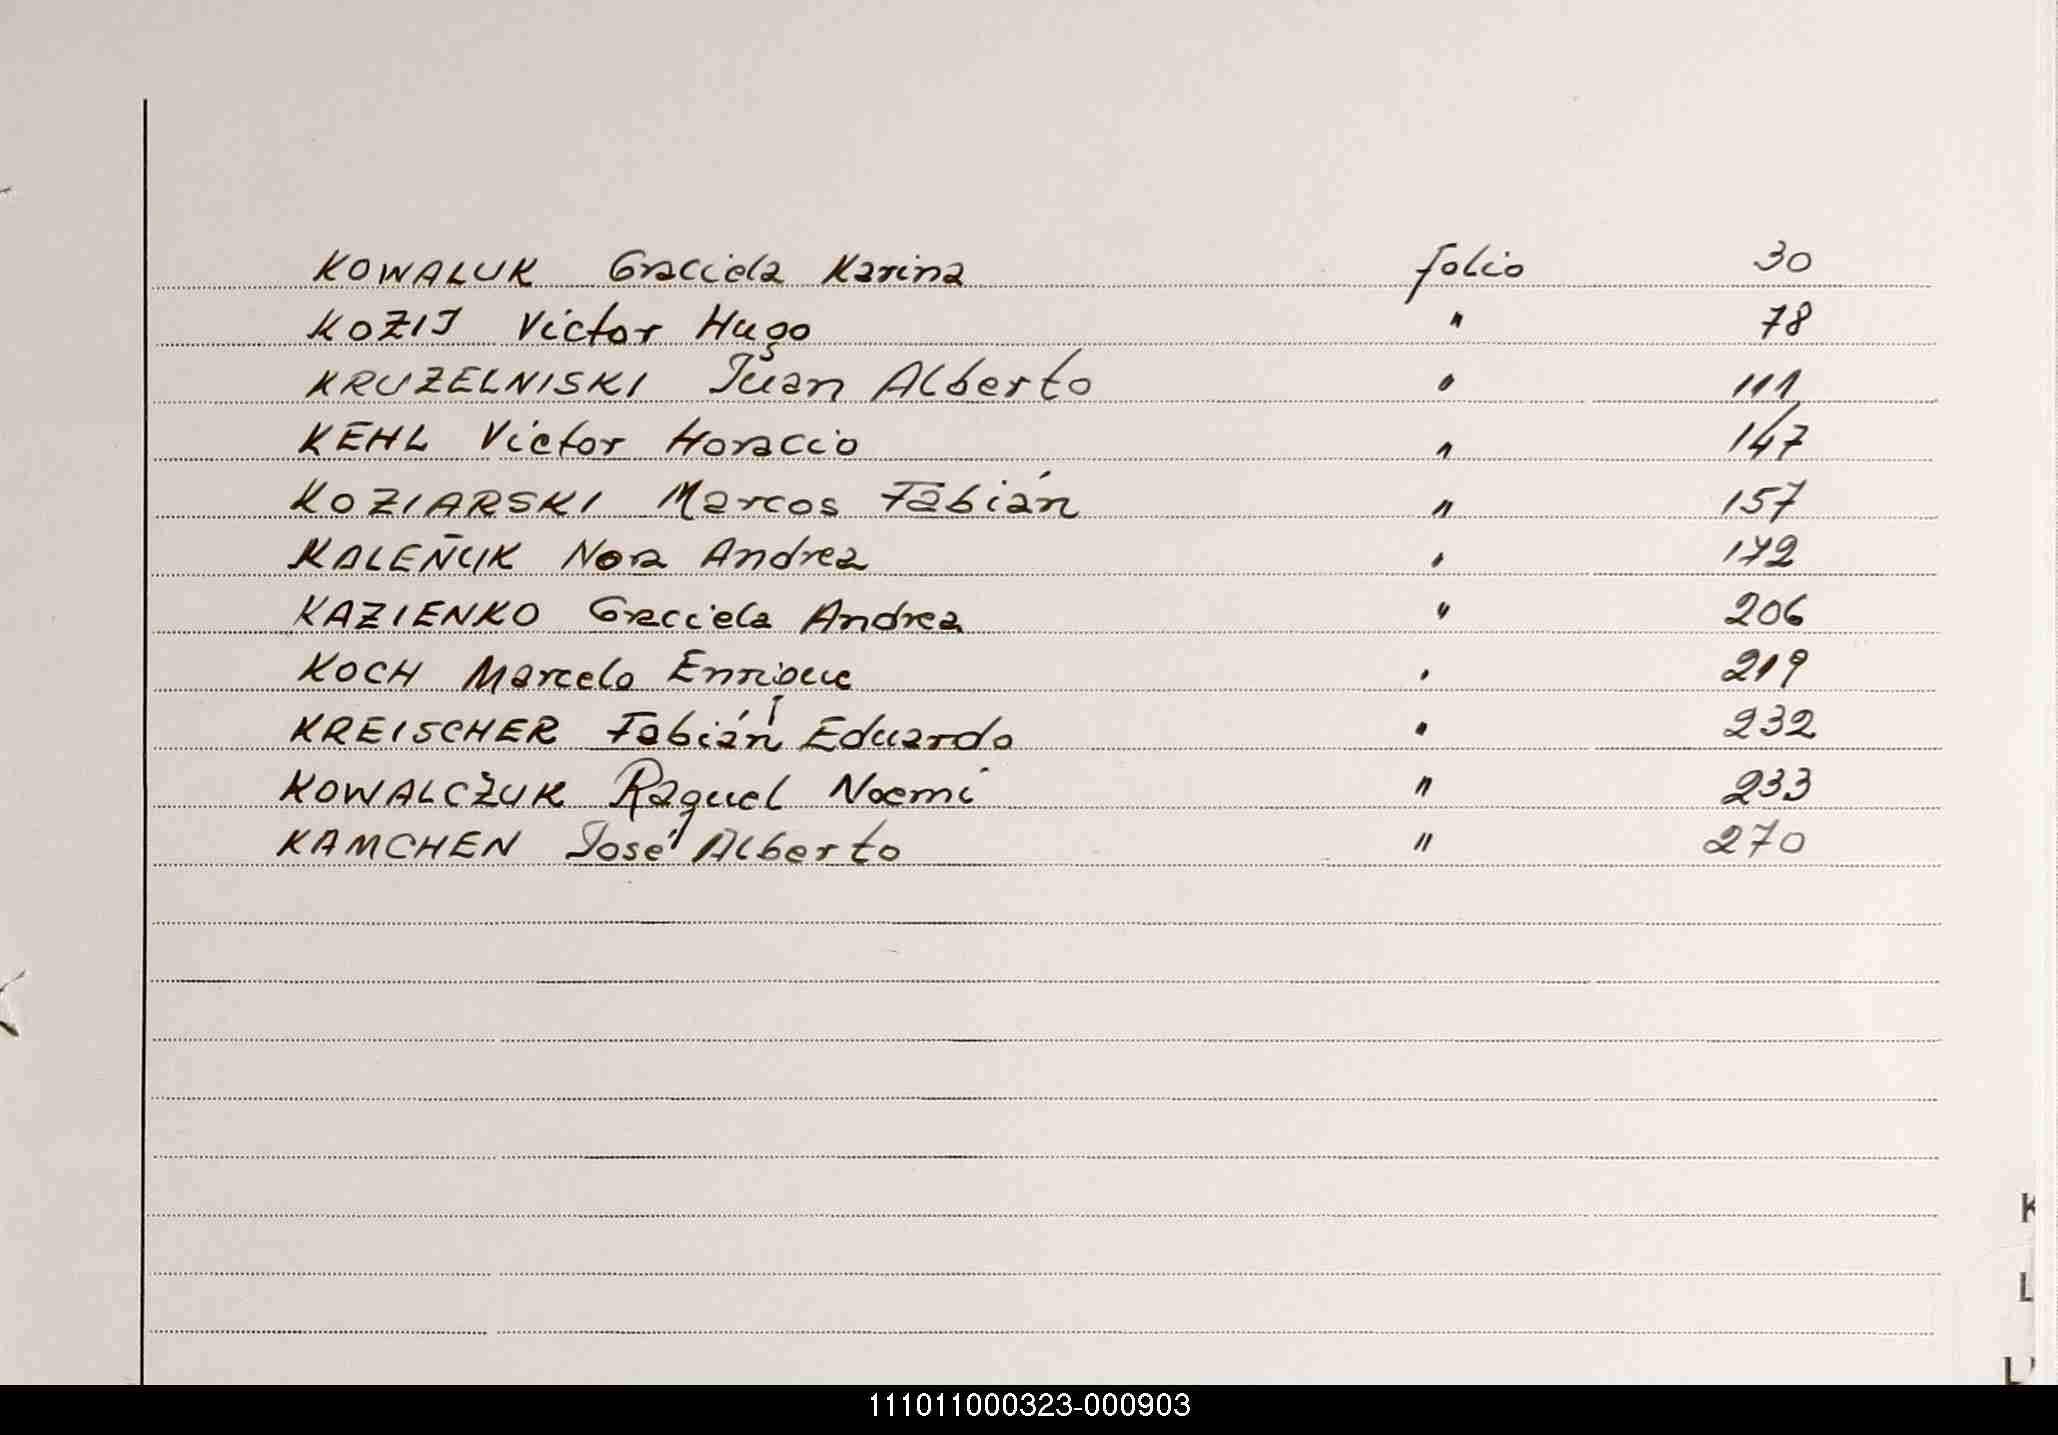 KOWALUK Graciela Karina folio 30
KOZIJ Victor Hugo " 78
KRUZELNISKI Juan Alberto " 111
KEHL Victor Horacio " 147
KOZIARSKI Marcos Fabián " 157
KALEÑUK Nora Andrea " 172
KAZIENKO Graciela Andrea " 206
KOCH Marcelo Enrique " 219
KREISCHER Fabián Eduardo " 232
KOWALCZUK Raquel Noemí " 233
KAMCHEN José Alberto " 270
K
L
111011000323-000903